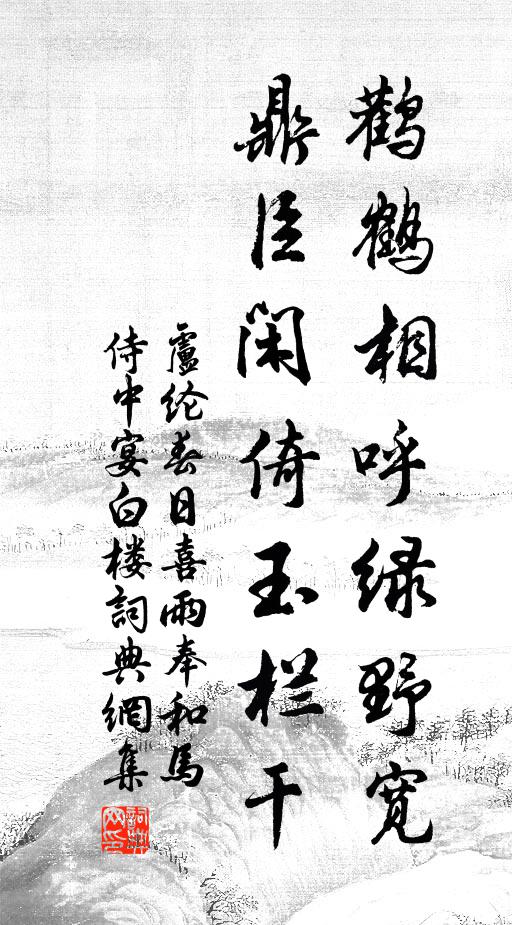 鹳鹤相呼绿野宽
鼎臣闲倚玉栏干
盧纶春日喜雨奉和馬
侍中宴白楼詞典網集